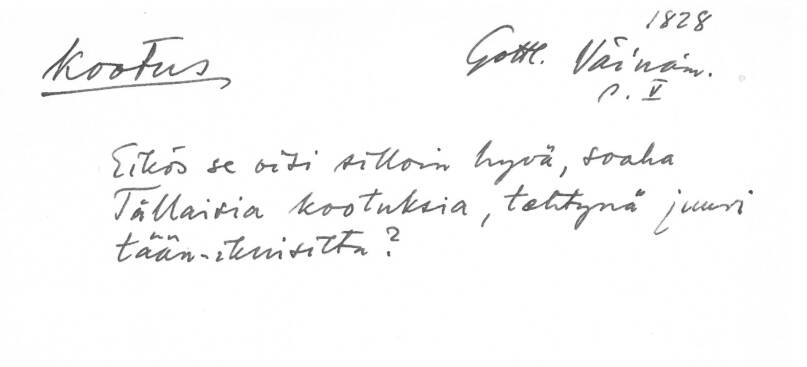 1828
Kootus Gottl. Väinäm.
s. V
Eikös se oisi silloin hyvä, soaha
Tällaisia kootuksia, tehtynä juuri
tään-ikuisilta?